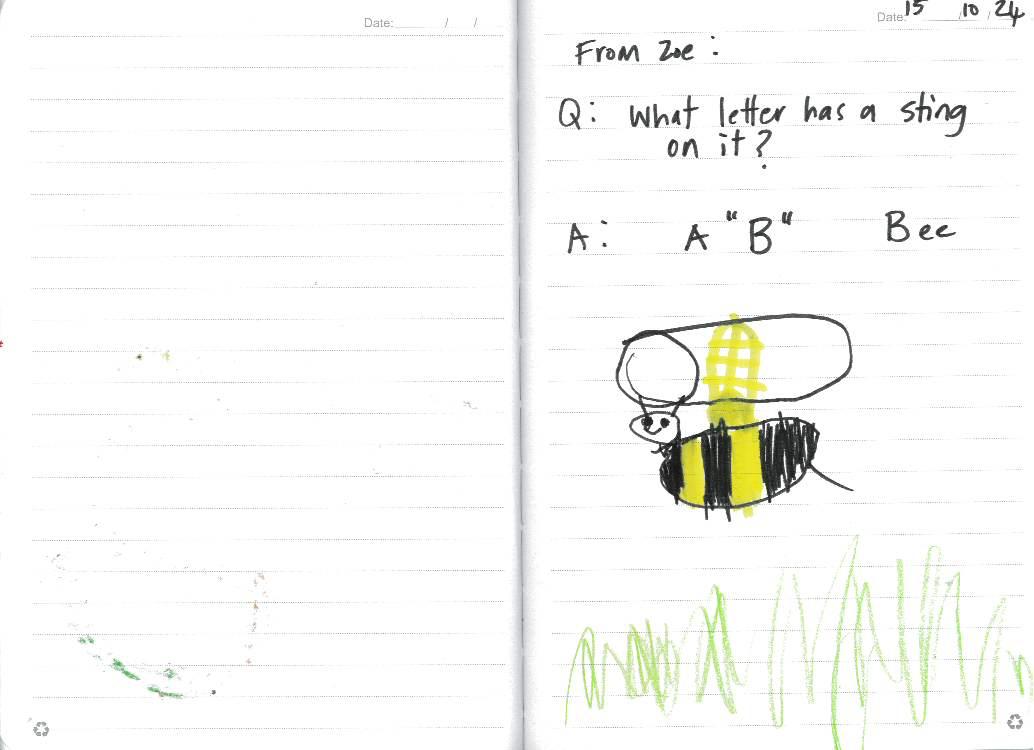 Date: / /
Date: 15 / 10 / 24
From Zoe :
Q: What letter has a sting
on it?
A: A "B" Bee